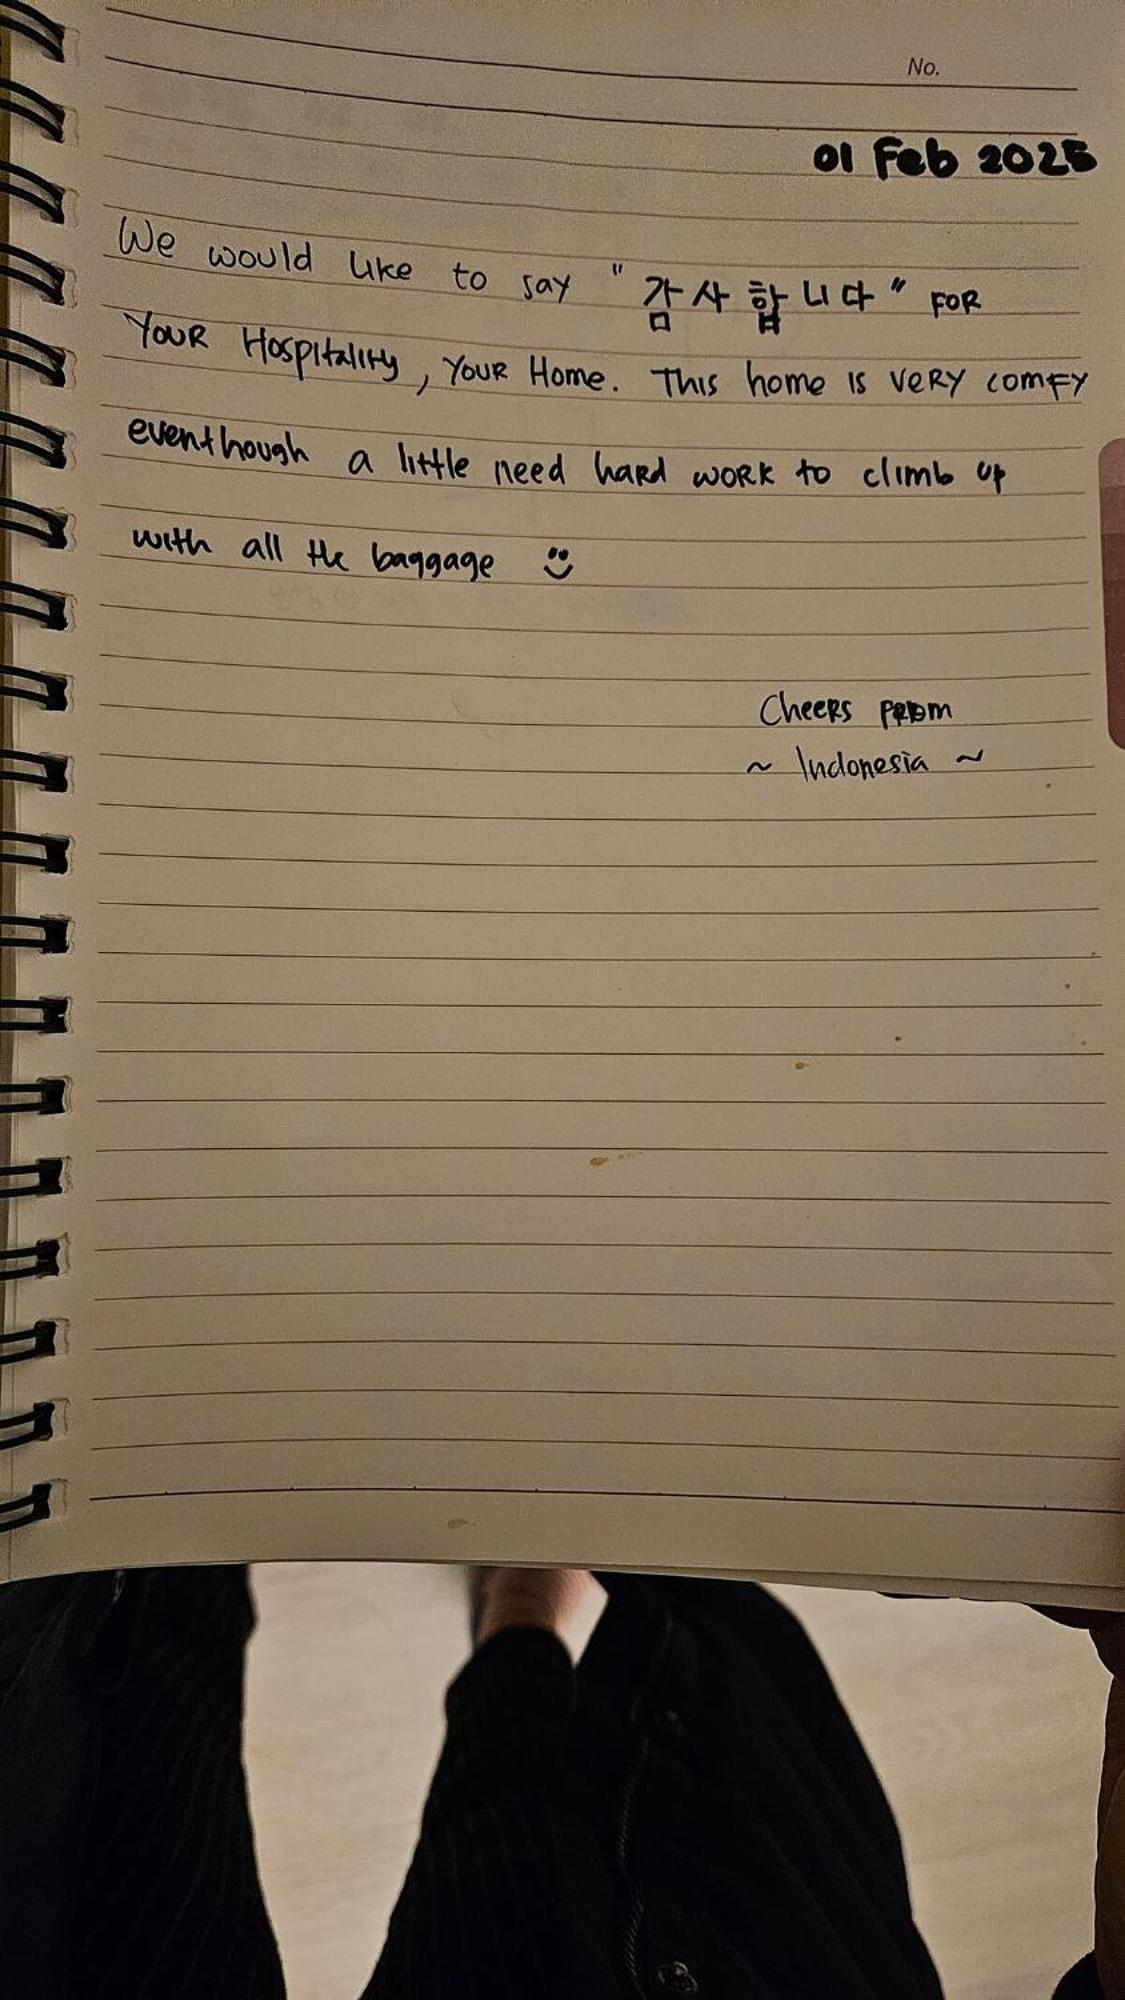 No.
01 Feb 2025
We would like to say "감사합니다" FOR
YOUR Hospitality, YOUR Home. This home is VERY comfy
eventhough a little need hard work to climb up
with all the baggage
Cheers from
~ Indonesia ~